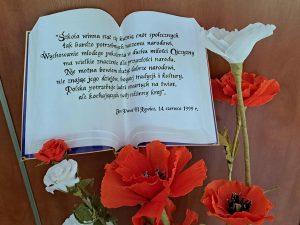 "Szkoła winna stać się kuźnią cnót społecznych
tak bardzo potrzebnych naszemu narodowi.
Wychowanie młodego pokolenia w duchu miłości Ojczyzny
ma wielkie znaczenie dla przyszłości narodu.
Nie można bowiem służyć dobrze narodowi,
nie znając jego dziejów, bogatej tradycji i kultury.
Polska potrzebuje ludzi otwartych na świat,
ale kochających swój rodzinny kraj".
Jan Paweł II, Łowicz, 14. czerwca 1999 r.